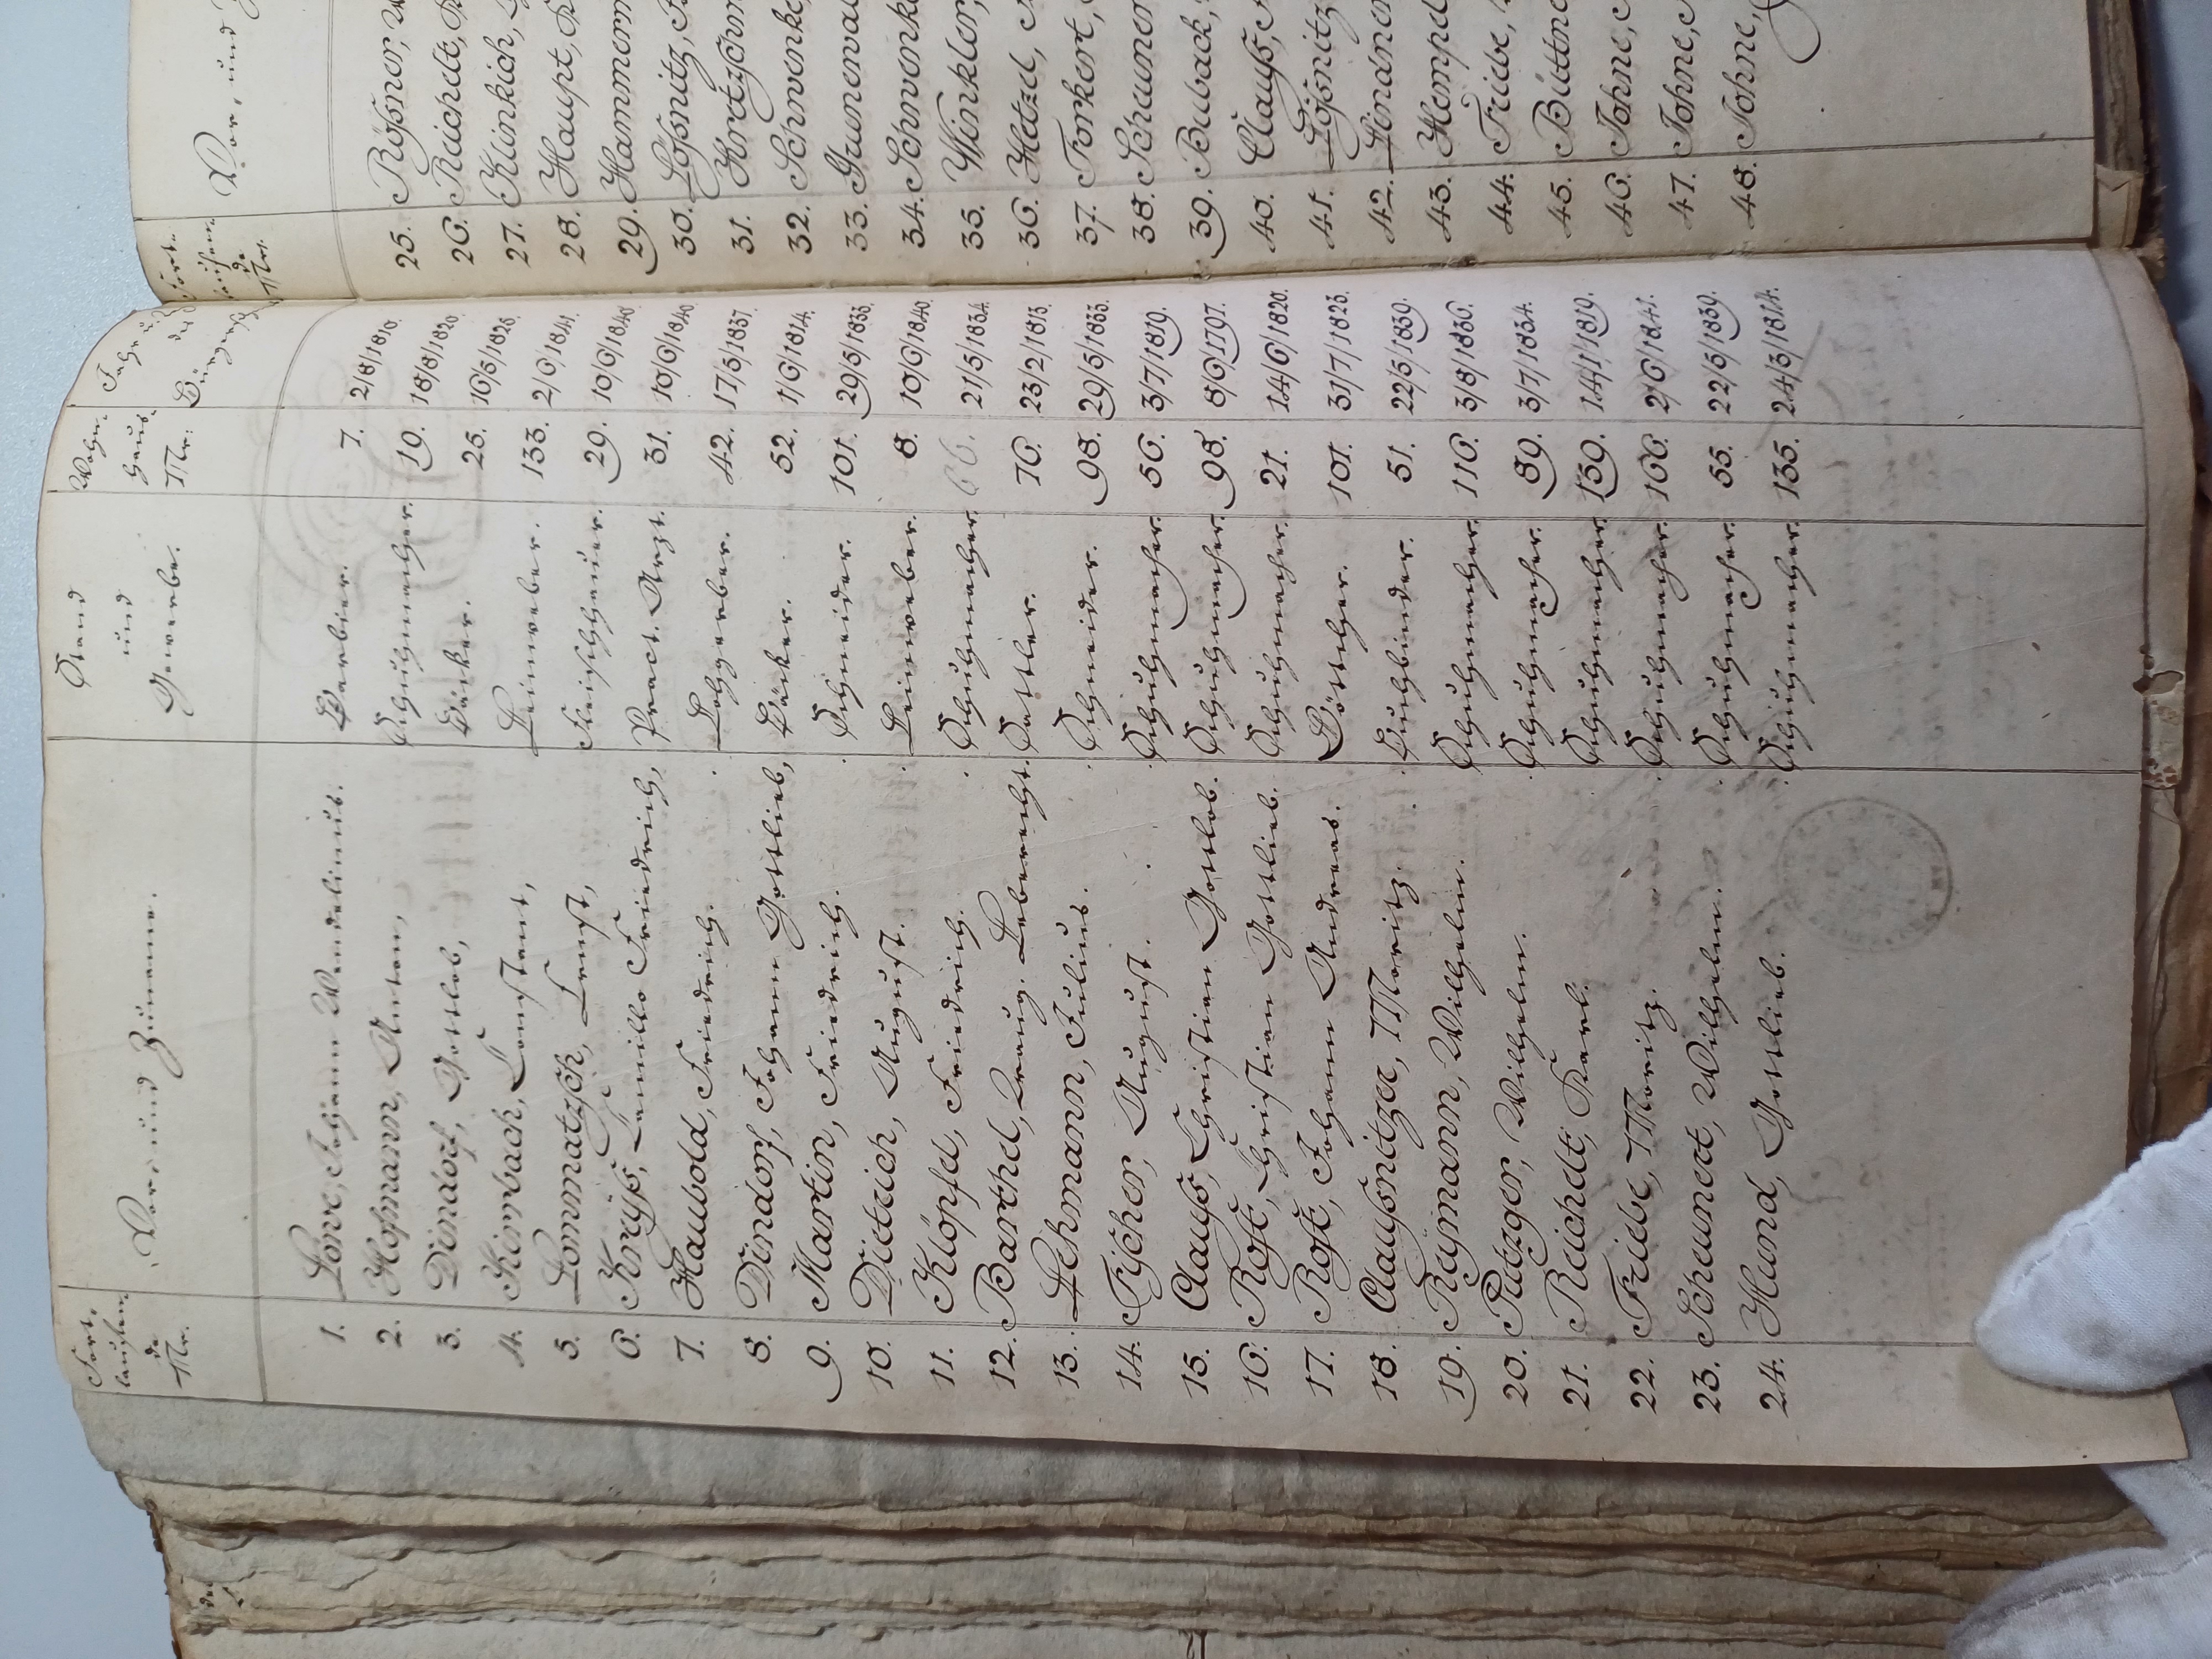 Fort-
laufen
de
Nr.
Vor- und Zuname.
Stand
und
Gewerbe.
Wohn-
haus-
Nr:
Jahr u.
des
1. Löwe, Johann Wendelinus. Barbier. 7. 2/8/1810.
2. Hofmann, Anton, Schuhmacher. 19. 18/8/1820.
3. Dindorf, Gottlob, Bäcker. 25. 16/5/1826.
4. Kirmbach, Constant, Leinweber. 133. 2/6/1841.
5. Lommatzsch, Ernst, Fleischhauer. 29. 10/6/1840.
6. Kreyß, Camillo Friedrich, Pract. Arzt. 31. 10/6/1840.
7. Hauwold, Friedrich. Lohgerber. 42. 17/5/1837.
8. Dindorf, Johann Gottlieb, Bäcker. 52. 1/6/1814.
9. Martin, Friedrich. Schneider. 101. 29/5/1833.
10. Dietrich, August. Leinweber. 8. 10/6/1840.
11. Klöpfel, Friedrich. Schuhmacher. 66. 21/5/1834.
12. Barthel, Traug. Leberecht. Sattler. 76. 23/2/1813.
13. Lehmann, Julius. Schneider. 98. 29/5/1833.
14. Fischer, August. Schuhmacher. 56. 3/7/1819.
15. Clauß, Christian Gottlob. Schuhmacher. 98. 8/6/1797.
16. Rost, Christian Gottlieb. Schuhmacher. 21. 14/6/1820.
17. Rost, Johann Andreas. Böttcher. 101. 31/7/1823.
18. Claußnitzer, Moritz. Buchbinder. 51. 22/5/1839.
19. Reymann, Wilhelm. Schuhmacher. 116. 3/8/1836.
20. Putzger, Wilhelm. Schuhmacher. 89. 3/7/1834.
21. Reichelt, Karl. Schuhmacher. 139. 14/1/1819.
22. Friebe, Moritz. Schuhmacher. 106. 2/6/1841.
23. Scheunert, Wilhelm. Schuhmacher. 55. 22/5/1839.
24. Hund, Gottlieb. Schuhmacher. 135. 24/3/1814.
Fort-
laufen
de
Nr.
Vor- und
25. Rößner,
26. Reichelt,
27. Klinkich,
28. Haupt,
29. Hammerm
30. Lößnitz,
31. Kretzschm
32. Schwenke,
33. Grunewal
34. Schwenke
35. Winkler,
36. Hetzel,
37. Forkert,
38. Schauner
39. Buback,
40. Clauß,
41. Lößnitz
42. Lindner
43. Hempel
44. Friebe,
45. Büttne
46. Johne,
47. Johne,
48. Johne,